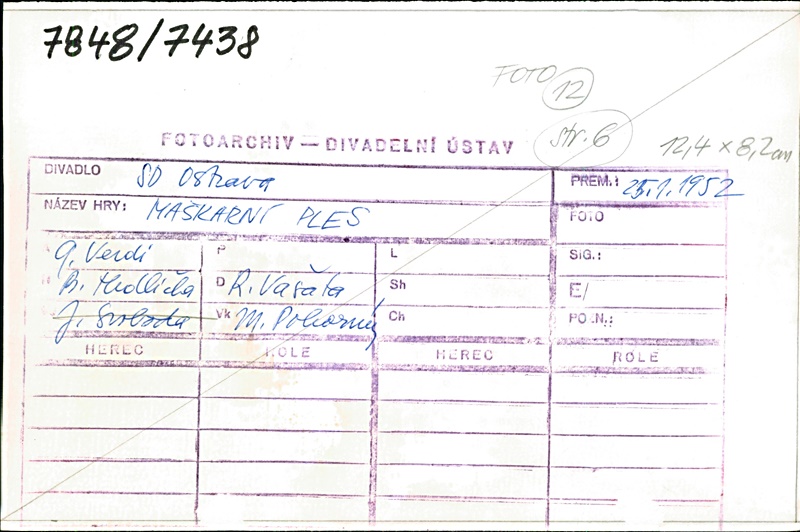 7848/7438
FOTO 12
FOTOARCHIV — DIVADELNÍ ÚSTAV
str. 6
12,4 × 8,2 cm
DIVADLO SD Ostrava
PREM.: 25.1.1952
NÁZEV HRY: MAŠKARNÍ PLES
FOTO
G. Verdi P L SIG.:
B. Thodlička D R. Vašata Sh E/
J. Svoboda Vk M. Pokorný Ch PO.N.:
HEREC ROLE HEREC ROLE